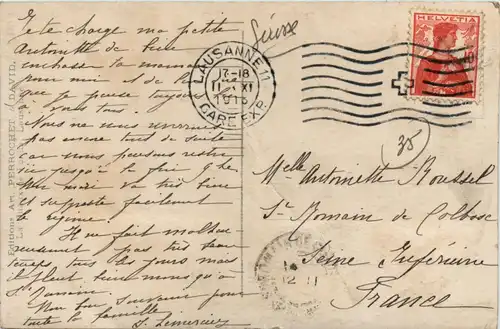 Suisse
Je te charge ma petite
Antoinette de bien
embrasser ta maman
pour moi et de
que je pense toujours
à vous tous
Nous ne nous
pas encore tout de suite
car nous pensons rester
ici jusqu'à la fin
Mon mari va très bien
et supporte facilement
le régime.
Il ne fait malheu
reusement pas très beau
temps tous les jours mais
il pleut bien moins qu'à
St Romain
Mon bon souvenir pour
toute la famille
S. Lemercier
Editions Art. PERROCHET
DAVID
LAUSANNE 11
17-18
11 XI
GARE EXP.
HELVETIA
35
Melle Antoinette Roussel
St Romain de Colbosc
Seine Inférieure
France
12 11